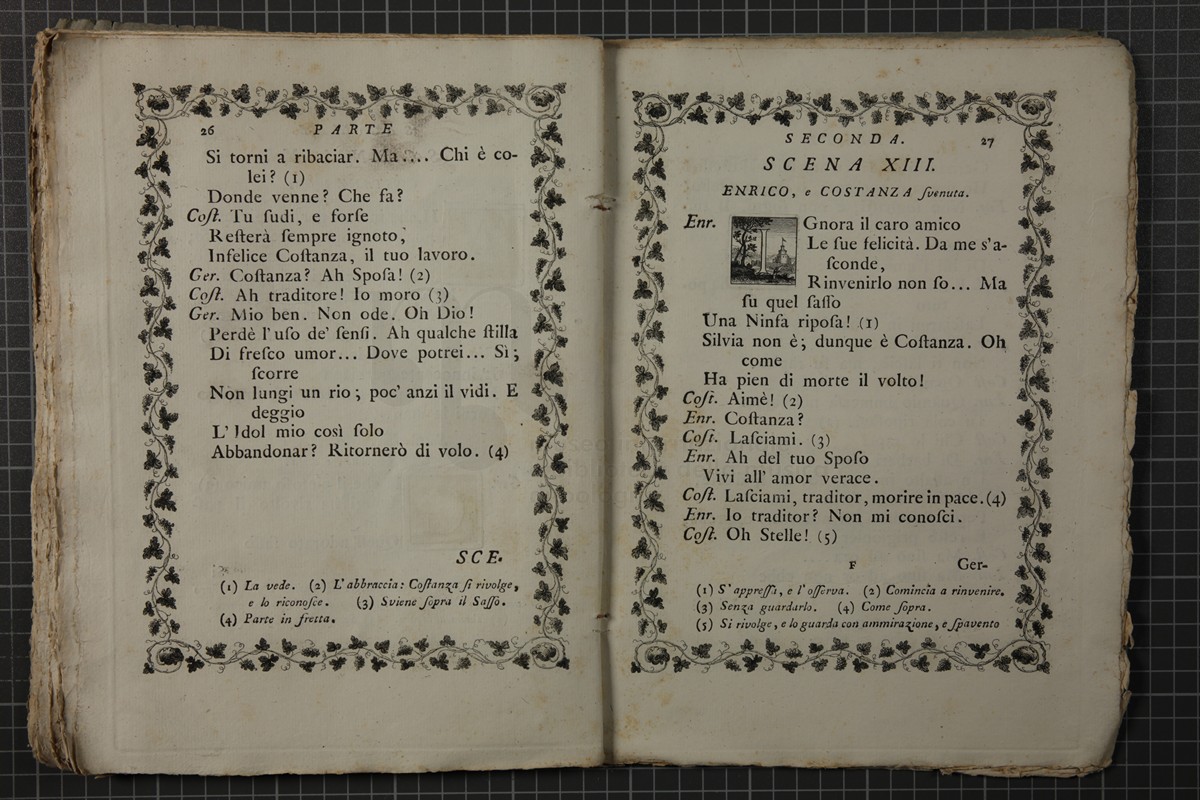 26
PARTE
Si torni a ribaciar. Ma.... Chi è co-
lei? (1)
Donde venne? Che fa?
Coſt. Tu ſudi, e forſe
Reſterà ſempre ignoto,
Infelice Coſtanza, il tuo lavoro.
Ger. Coſtanza? Ah Spoſa! (2)
Coſt. Ah traditore! Io moro (3)
Ger. Mio ben. Non ode. Oh Dio!
Perdè l'uſo de' ſenſi. Ah qualche ſtilla
Di freſco umor... Dove potrei... Sì;
ſcorre
Non lungi un rio; poc' anzi il vidi. E
deggio
L' Idol mio così ſolo
Abbandonar? Ritornerò di volo. (4)
SCE-
(1) La vede. (2) L'abbraccia: Coſtanza ſi rivolge,
e lo riconoſce. (3) Sviene ſopra il Saſſo.
(4) Parte in fretta.
SECONDA.
27
SCENA XIII.
ENRICO, e COSTANZA ſvenuta.
Enr. IGnora il caro amico
Le ſue felicità. Da me s'a-
ſconde,
Rinvenirlo non ſo... Ma
ſu quel ſaſſo
Una Ninfa ripoſa! (1)
Silvia non è; dunque è Coſtanza. Oh
come
Ha pien di morte il volto!
Coſt. Aimè! (2)
Enr. Coſtanza?
Coſt. Laſciami. (3)
Enr. Ah del tuo Spoſo
Vivi all' amor verace.
Coſt. Laſciami, traditor, morire in pace. (4)
Enr. Io traditor? Non mi conoſci.
Coſt. Oh Stelle! (5)
F
Ger-
(1) S'appreſſa, e l'oſſerva. (2) Comincia a rinvenire.
(3) Senza guardarlo. (4) Come ſopra.
(5) Si rivolge, e lo guarda con ammirazione, e ſpavento